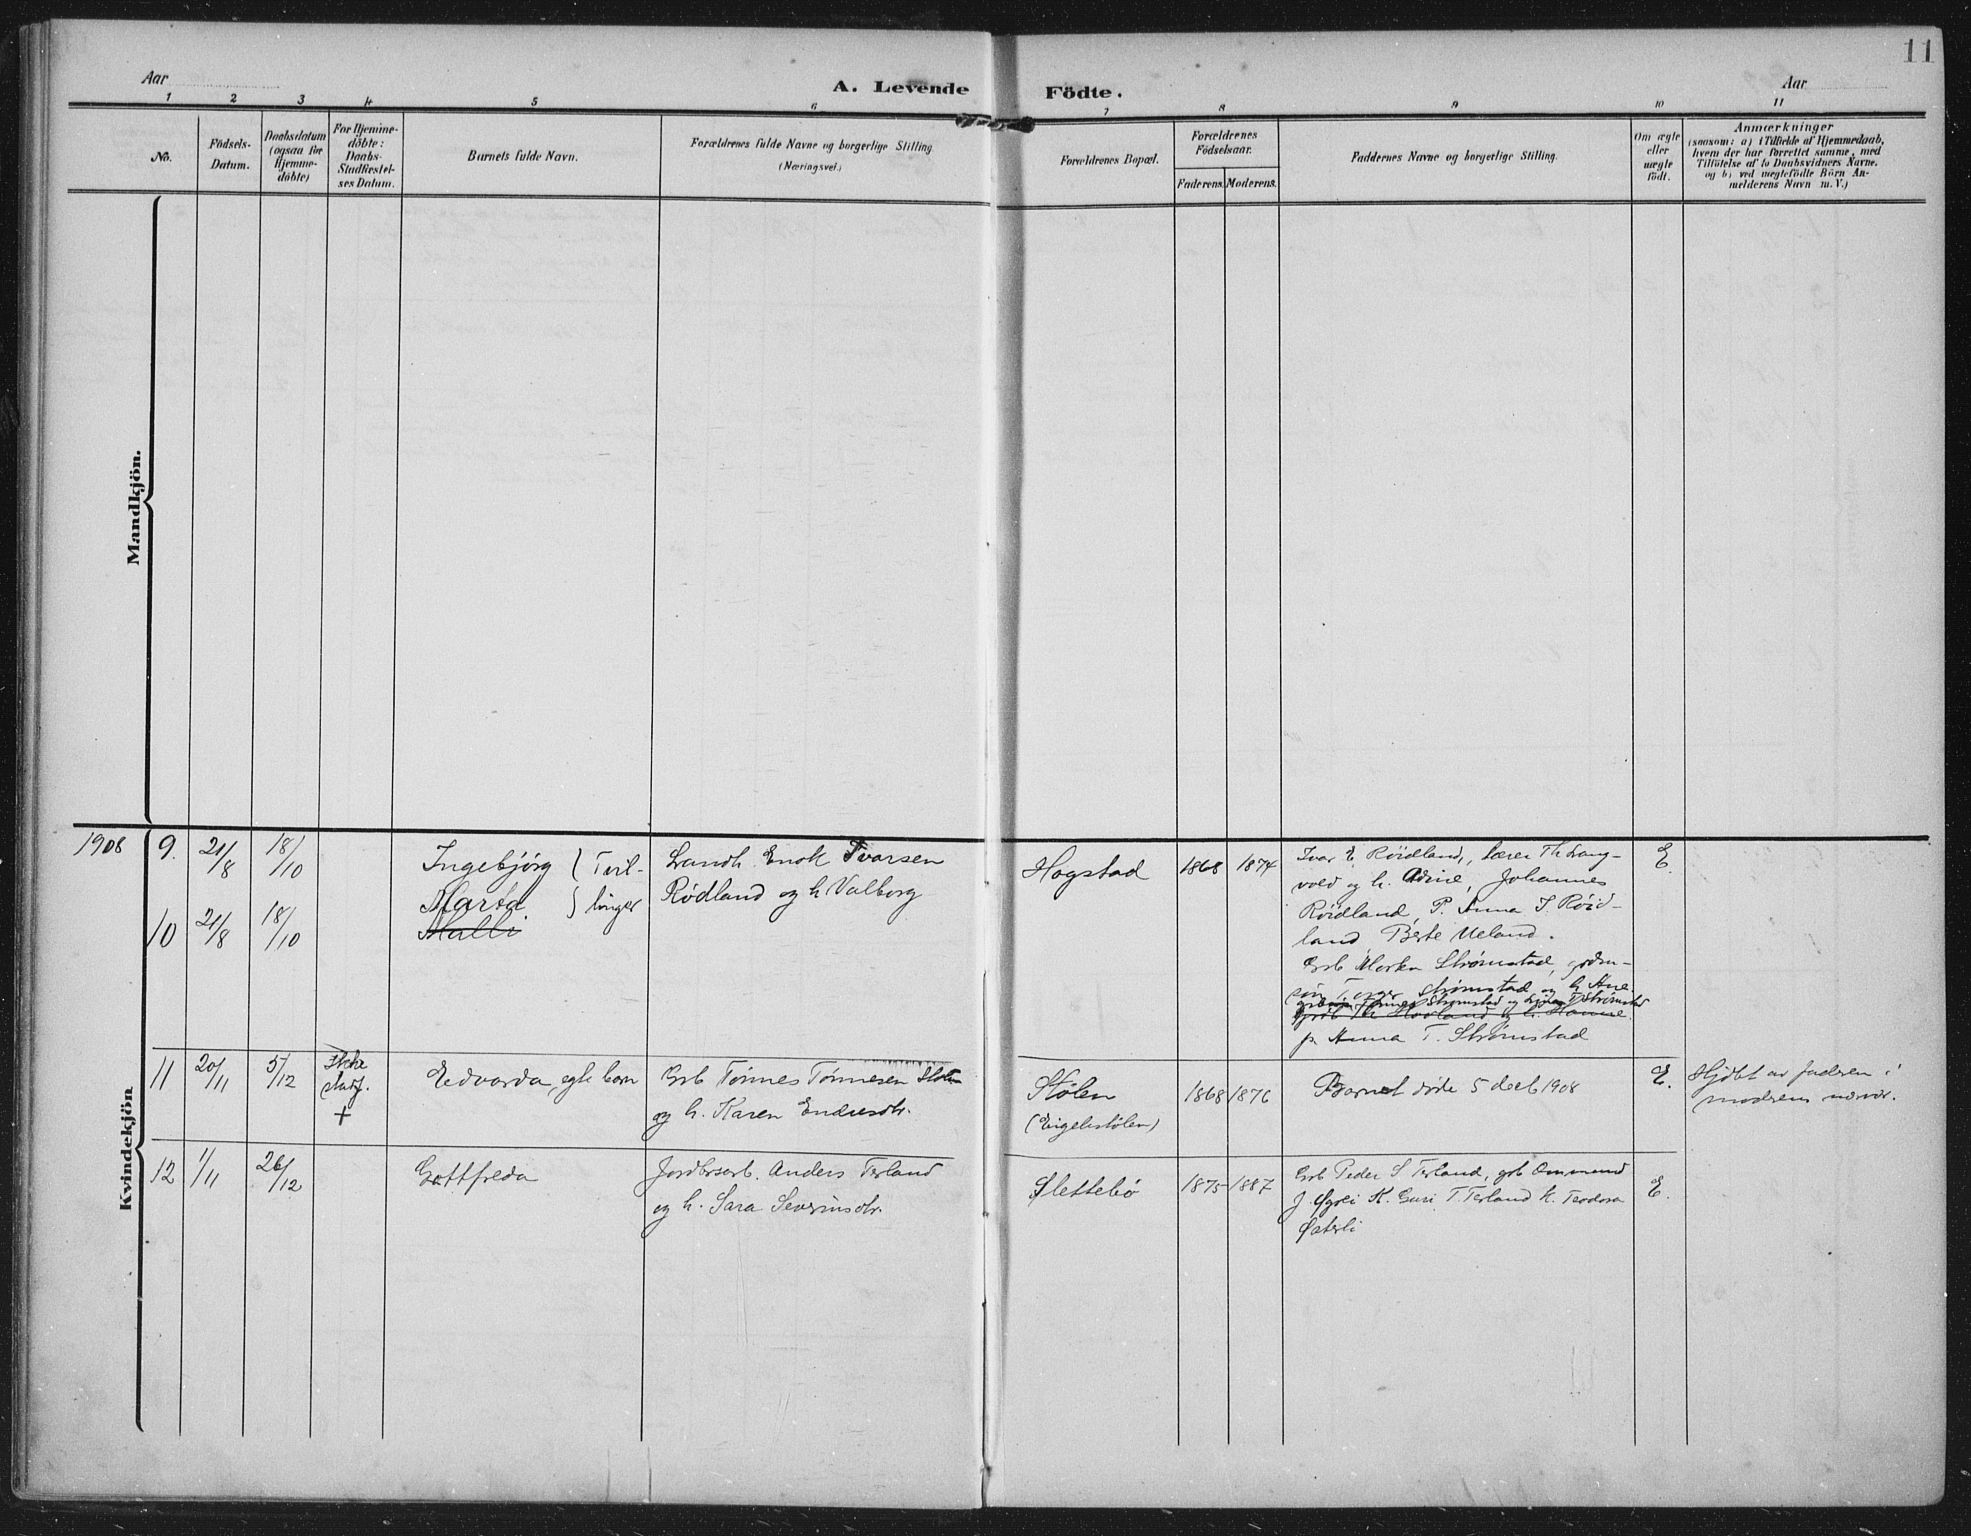 11
Aar
A. Levende Födte.
Aar
1 2 3 4 5 6 7 8 9 10 11
No.
Födsels-
Datum.
Daabsdatum
(ogsaa for
Hjemme-
döbte)
For Hjemme-
döbte:
Daabs-
Stadfæstel-
ses Datum.
Barnets fulde Navn.
Forældrenes fulde Navne og borgerlige Stilling
(Næringsvei.)
Forældrenes Bopæl.
Forældrenes
Födselsaar.
Faderens. Moderens.
Faddernes Navne og borgerlige Stilling.
Om ægte
eller
uægte
födt.
Anmærkninger
(saasom: a) i Tilfælde af Hjemmedaab,
hvem der har forrettet samme, med
Tilföielse af to Daabsvidners Navne.
og b) ved uægtefödte Börn An-
melderens Navn m. V.)
Mandkjön.
Kvindekjön
1908
9. 21/8 18/10
Ingebjørg
Landh. Enok Ivarsen
Rødland og h Valborg
Hogstad 1868 1874
Ivar E. Röidland, lærer Th Lang-
vold og h. Johannes
Röidland, P. Anna I. Röid-
land, Berte Ueland.
E.
10 21/8 18/10
Marta
Malli
Tvil-
linger
Strömstad
Strömstad og h Ane
p. Anna T. Strömstad
11 20/11 5/12
Ikke
stadf.
+
Edvarda, egte barn
Grb Tönnes Tönnesen
og h. Karen Endresdtr.
Stölen
1868 1876
Barnet döde 5 decb 1908
E.
Hjdbt av faderen i
moderens nærvær.
12 1/11 26/12
Gottfreda
Jordbrarb. Anders Terland
og h. Sara Severinsdtr.
Slettebö 1875 1887
Grb Peder S Terland, grb Ommund
J. K. Guri T. Terland K. Teodora
Österli
E.